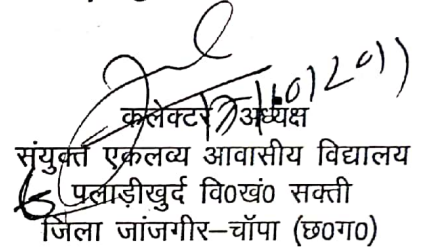 कलेक्टर / अध्यक्ष
संयुक्त एकलव्य आवासीय विद्यालय
पलाड़ीखुर्द वि0खं0 सक्ती
जिला जांजगीर–चॉपा (छ0ग0)